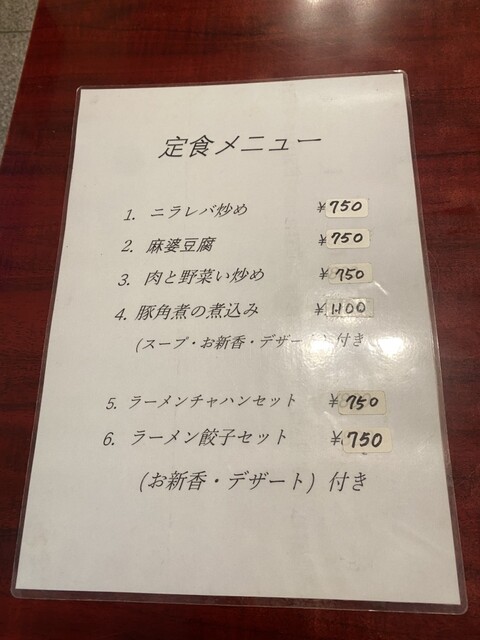 定食メニュー
1. ニラレバ炒め ¥750
2. 麻婆豆腐 ¥750
3. 肉と野菜い炒め ¥750
4. 豚角煮の煮込み ¥1100
(スープ・お新香・デザート) 付き
5. ラーメンチャハンセット ¥750
6. ラーメン餃子セット ¥750
(お新香・デザート) 付き